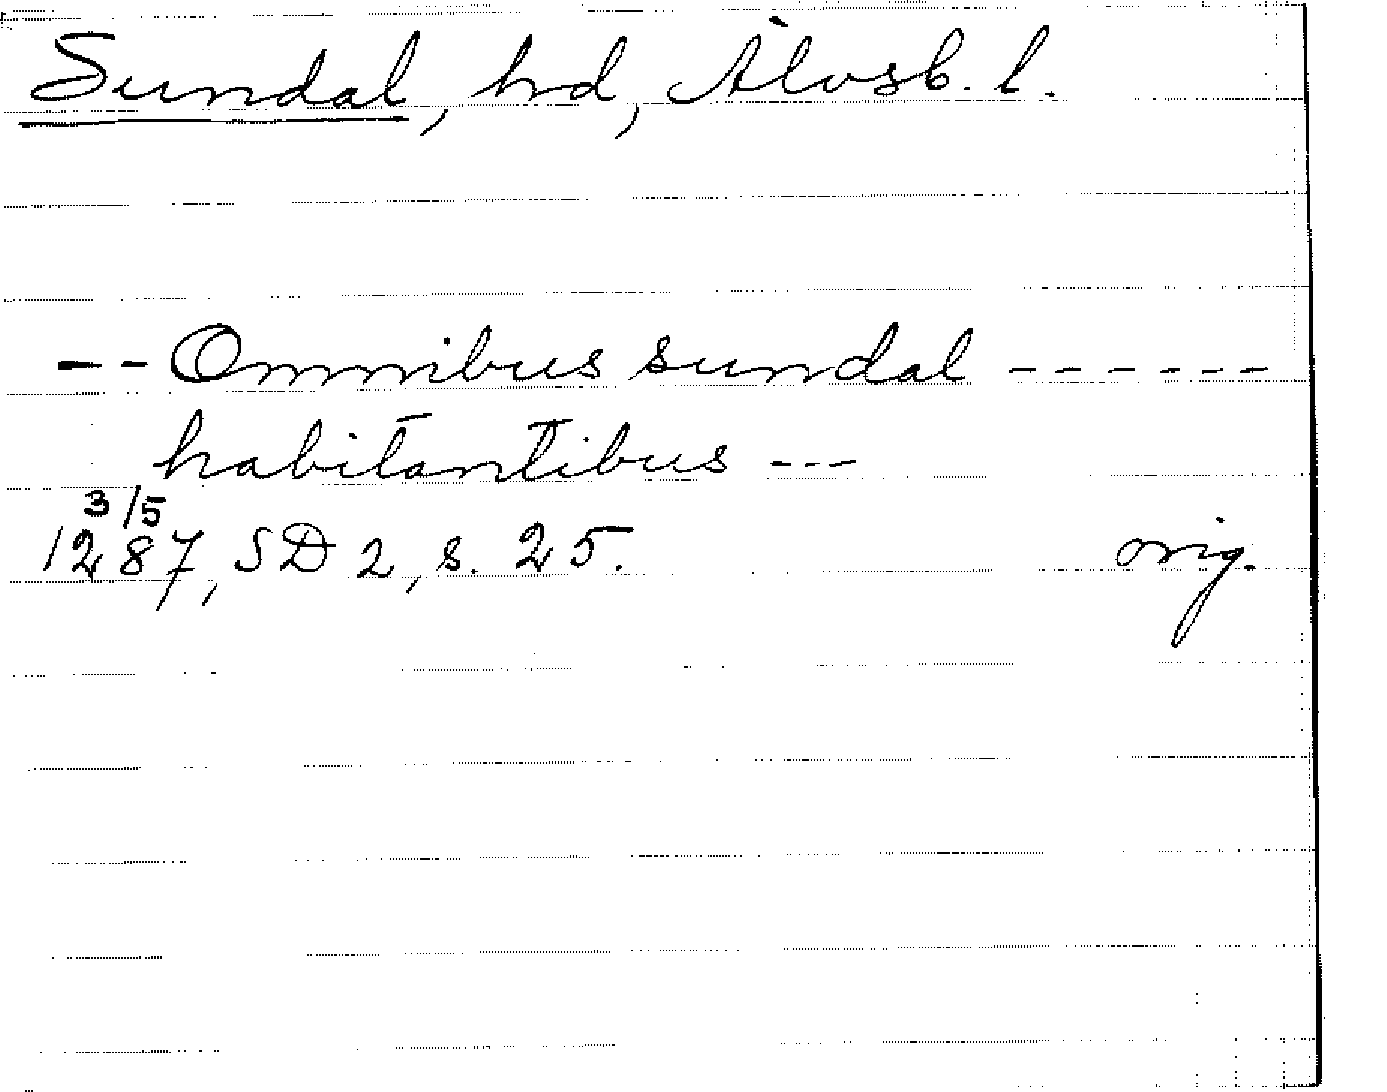 Sundal, hd, Älvsb. l.
-- Omnibus sundal ------
habitantibus ---
3/5
1287, SD 2, s. 25. orig.